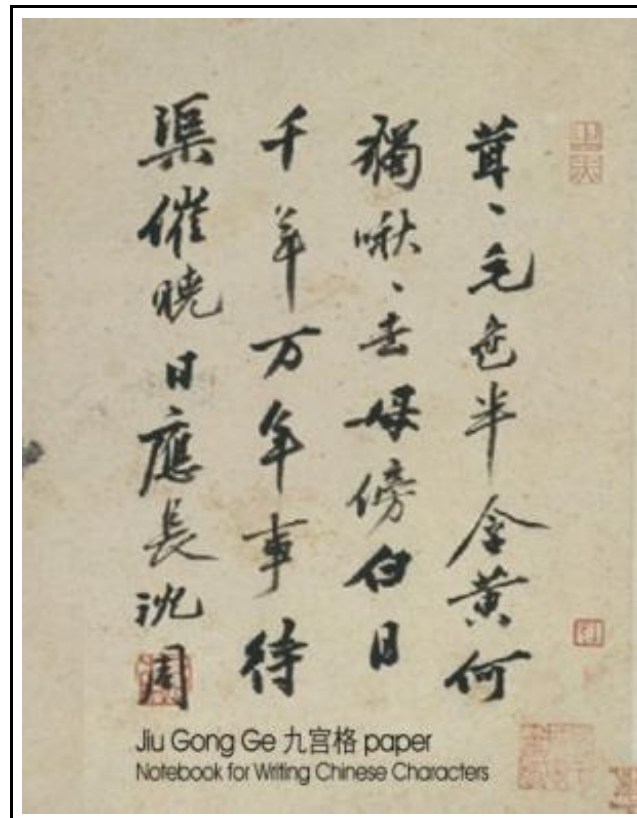 茸、毛色半含黄何
獨啾、去母傍白日
千年万年事待
渠催曉日應長沈周
Jiu Gong Ge 九宫格 paper
Notebook for Writing Chinese Characters